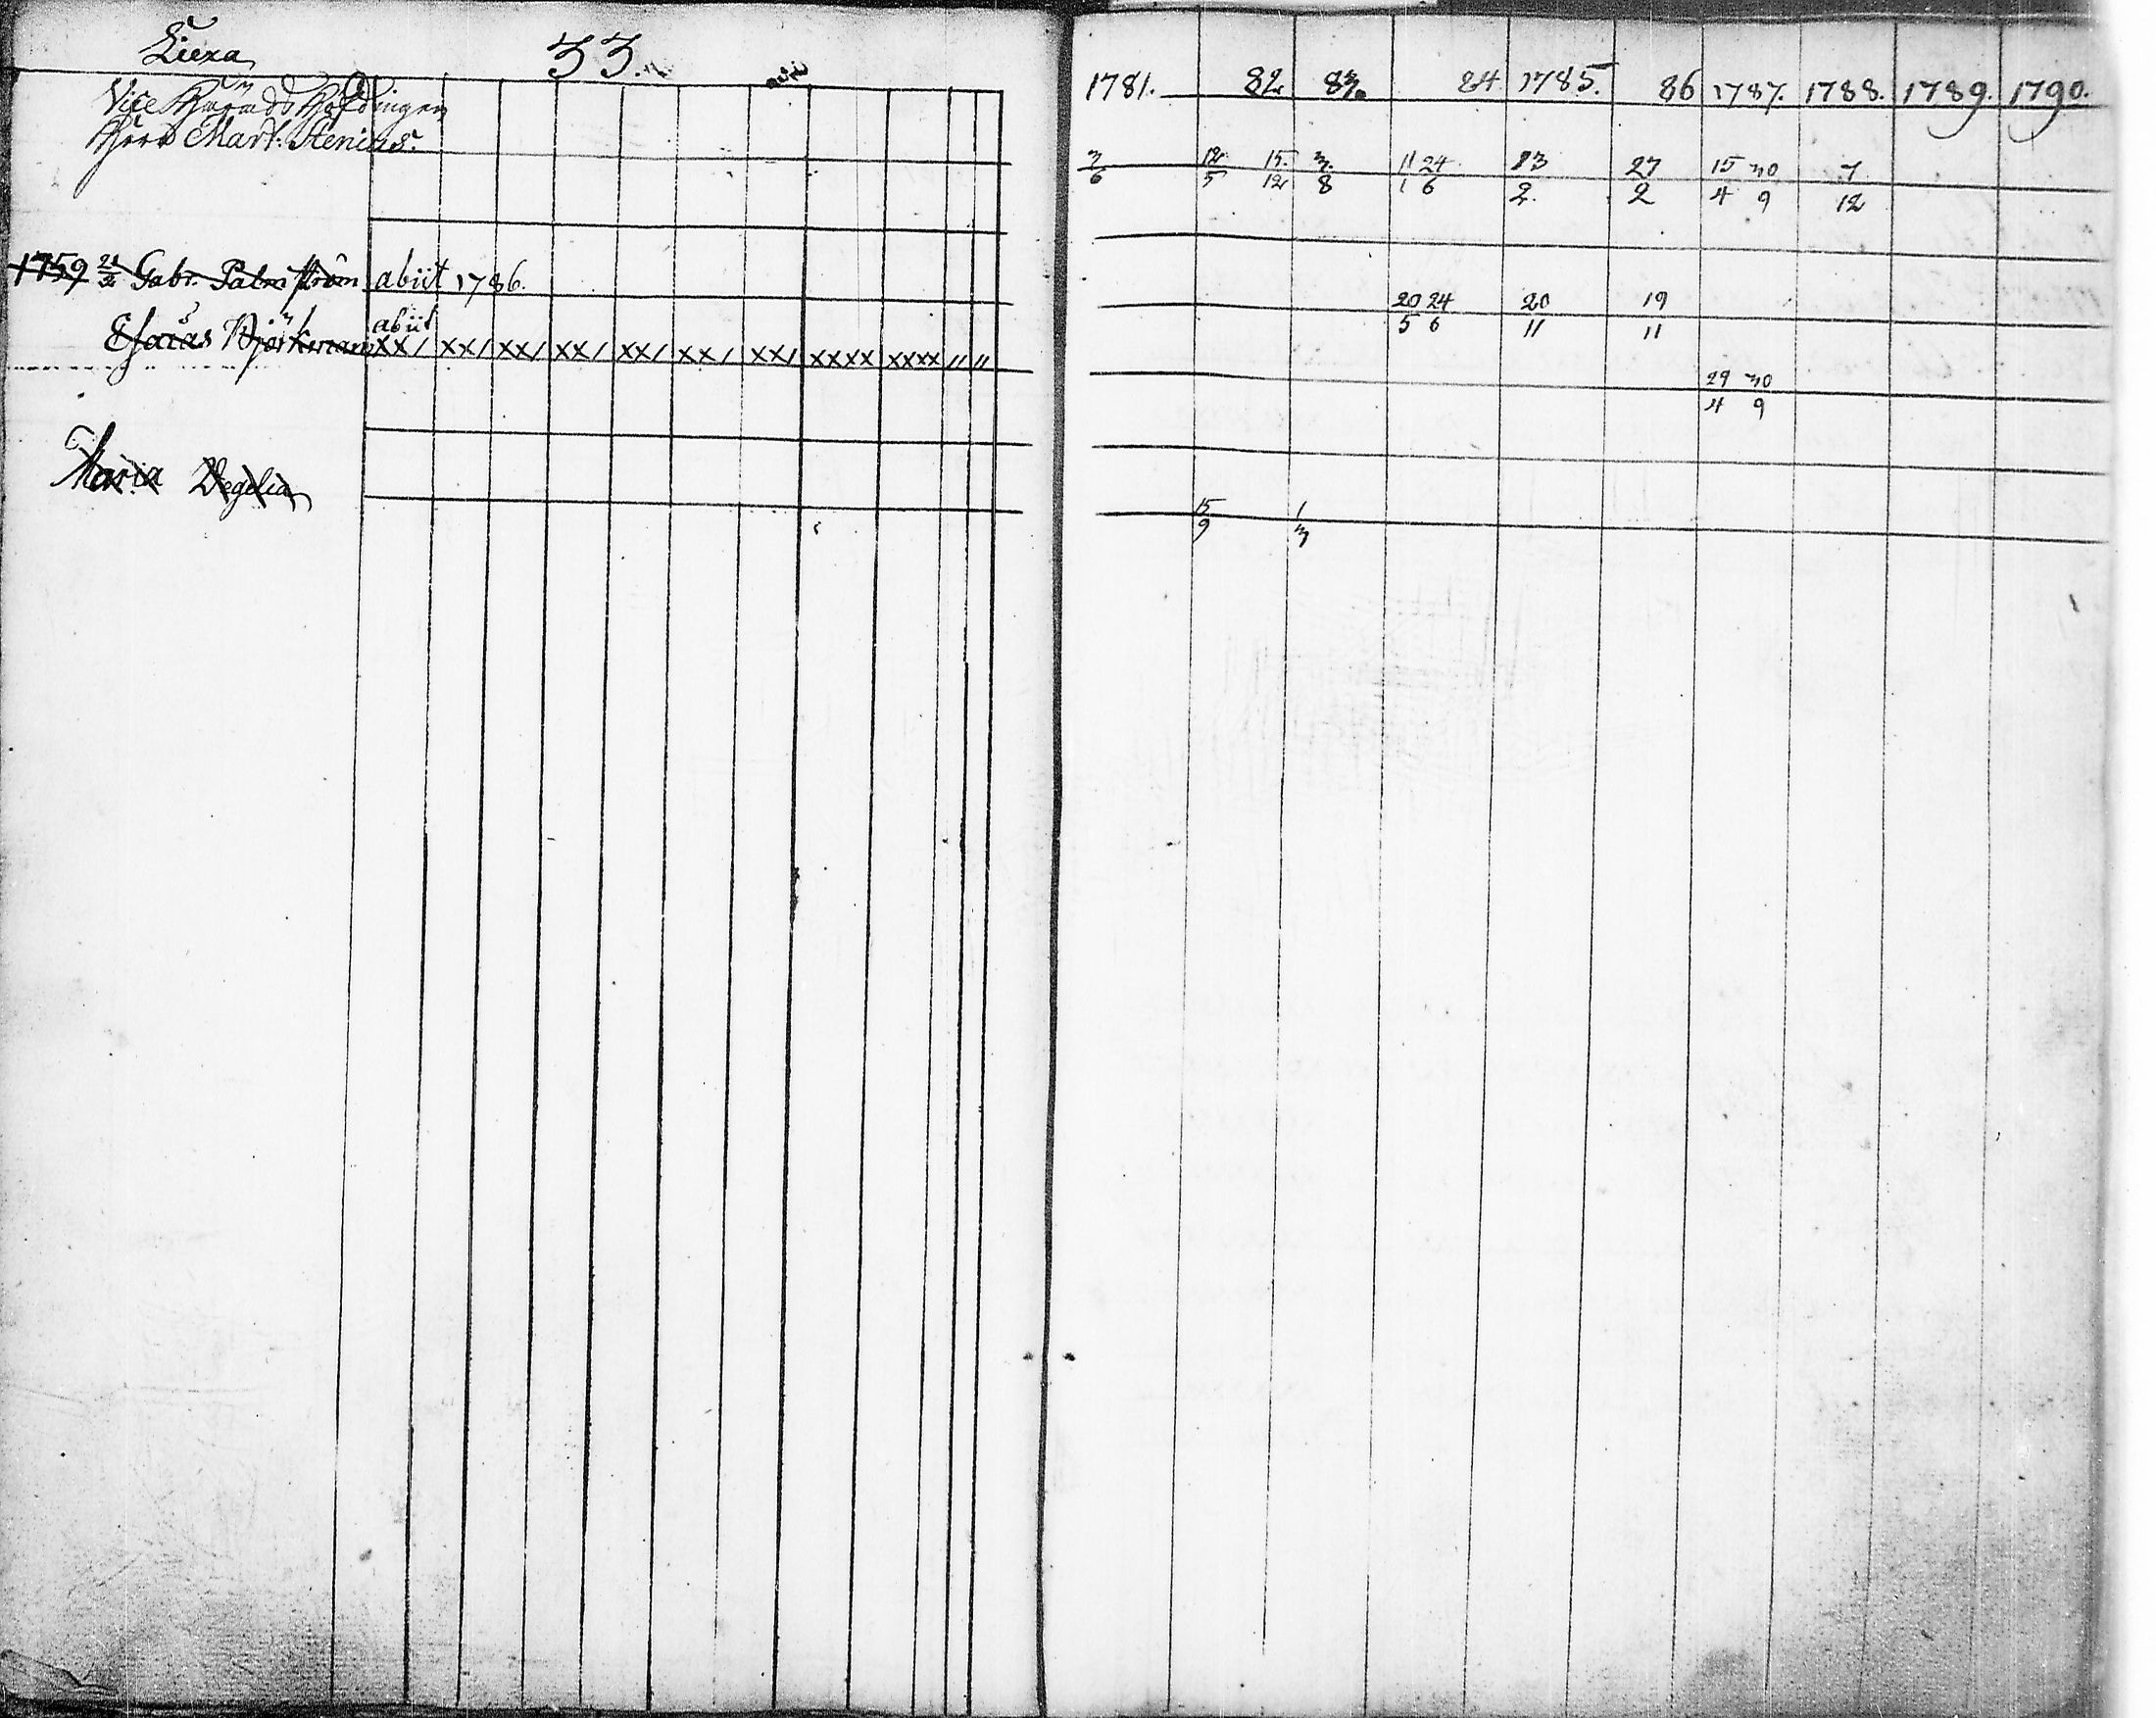 Liexa 33.
Vice Härads Höfdingen
Herr Mart. Stenius.
1759 21/2 Gabr. Palmström abiit 1786.
Esaias Björkman abiit
xx/ xx/ xx/ xx/ xx/ xx/ xx/ xxxx xxxx // //
Maria Wegelia
1781. 82 83. 84 1785. 86 1787. 1788. 1789. 1790.
3/6 12/5 15/12 3/8 11/1 24/6 13/2 27/2 15/4 30/9 7/12
20/5 24/6 20/11 19/11
29/4 30/9
15/9 1/3